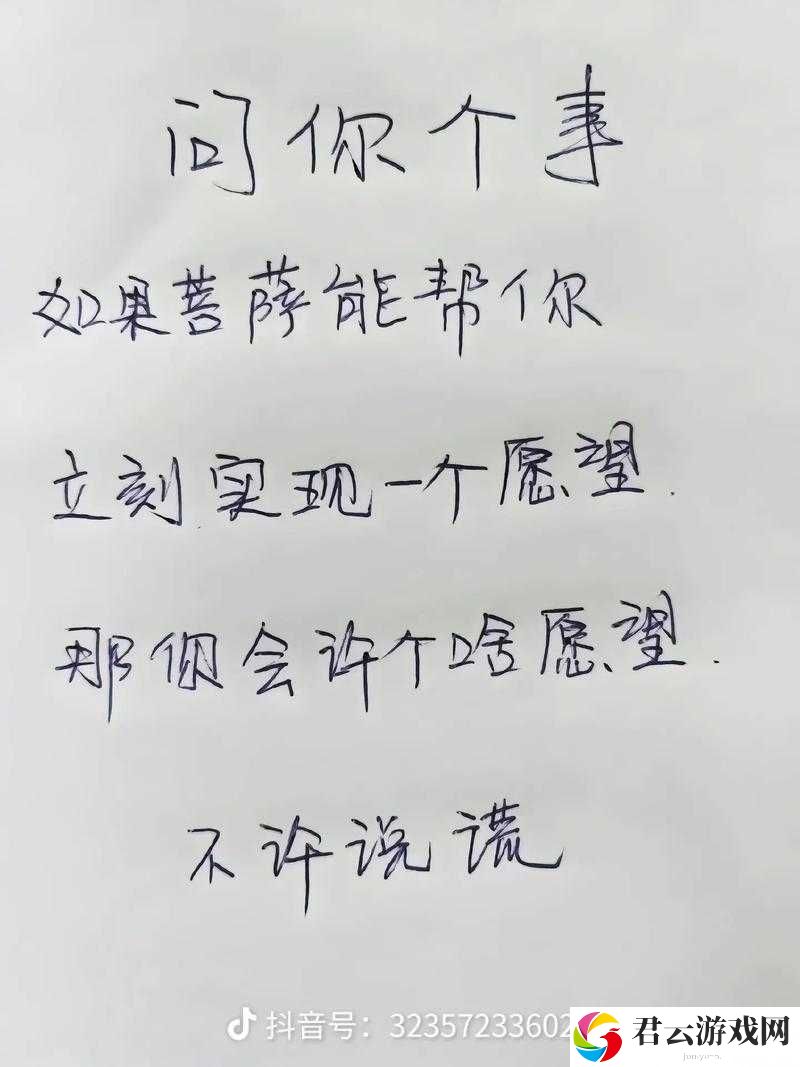 问你个事
如果菩萨能帮你
立刻实现一个愿望.
那你会许个啥愿望.
不许说谎
抖音号：32357233602
君云游戏网